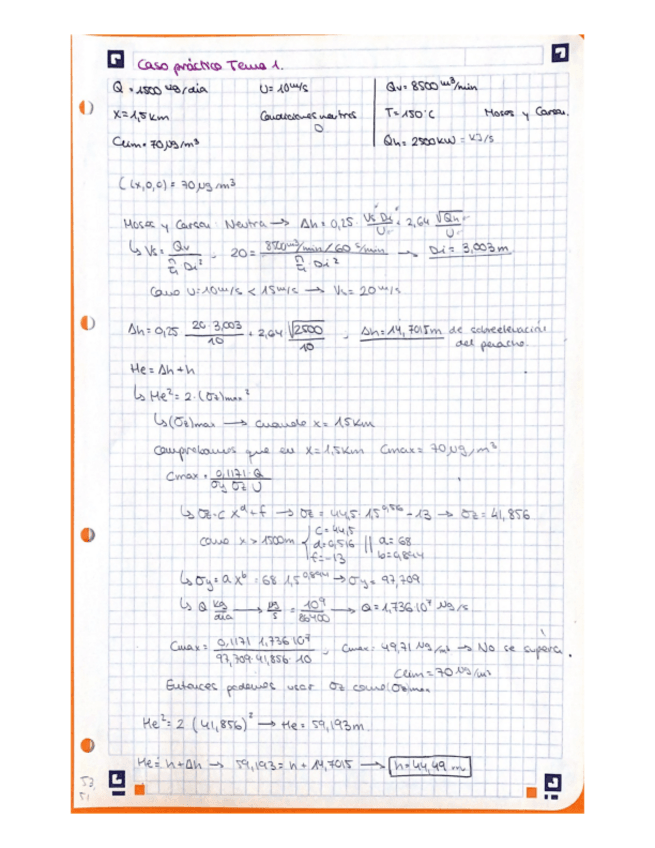 Caso práctico Tema 1.
Q = 1500 kg/día U = 10 m/s Qv = 8500 m³/min
X = 1,5 km Condiciones neutras T = 150°C Moses y Carson.
D
Clim = 70 µg/m³ Qh = 2500 kW = kJ/s
C(x,0,0) = 70 µg/m³
Moses y Carson Neutra → Δh = 0,25 · Vs Di / U + 2,64 √Qh / U
↳ Vs = Qv / (π/4 Di²) , 20 = 8500 m³/min / 60 s/min / (π/4 Di²) → Di = 3,003 m
Como U = 10 m/s < 15 m/s → Vs = 20 m/s
Δh = 0,25 20 · 3,003 / 10 + 2,64 √2500 / 10 , Δh = 14,7015 m de sobreelevación
del penacho.
He = Δh + h
↳ He² = 2 · (σz)max²
↳ (σz)max → cuando x = 1,5 km
Comprobamos que en x = 1,5 km Cmax = 70 µg/m³
Cmax = 0,1171 · Q / σy σz U
↳ σz = c x^d + f → σz = 44,5 · 1,5^0,516 - 13 → σz = 41,856
como x > 1500m { c = 44,5
d = 0,516 || a = 68
f = -13 b = 0,894
↳ σy = a x^b = 68 · 1,5^0,894 → σy = 97,709
↳ Q kg/día → µg/s = 10⁹/86400 → Q = 1,736·10⁷ µg/s
Cmax = 0,1171 · 1,736·10⁷ / 97,709 · 41,856 · 10 , Cmax = 49,71 µg/m³ → No se supera.
Clim = 70 µg/m³
Entonces podemos usar σz como (σz)max
He² = 2 (41,856)² → He = 59,193 m.
He = h + Δh → 59,193 = h + 14,7015 → h = 44,49 m